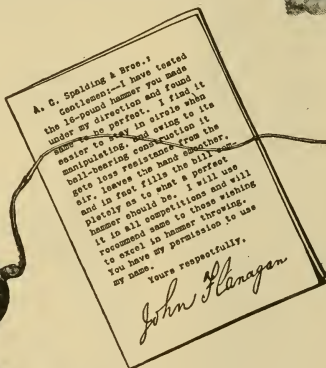 A. C. Spalding & Bros.:
Gentlemen:—I have tested
the 16-pound hammer you made
under my direction and found
same to be perfect. I find it
easier to stay in circle when
manipulating, and owing to its
ball-bearing construction it
gets less resistance from the
air, leaves the hand smoother,
and in fact fills the bill com-
pletely as to what a perfect
hammer should be. I will use
it in all competitions and will
recommend same to those wishing
to excel in hammer throwing.
You have my permission to use
my name.
Yours respectfully,
John Flanagan